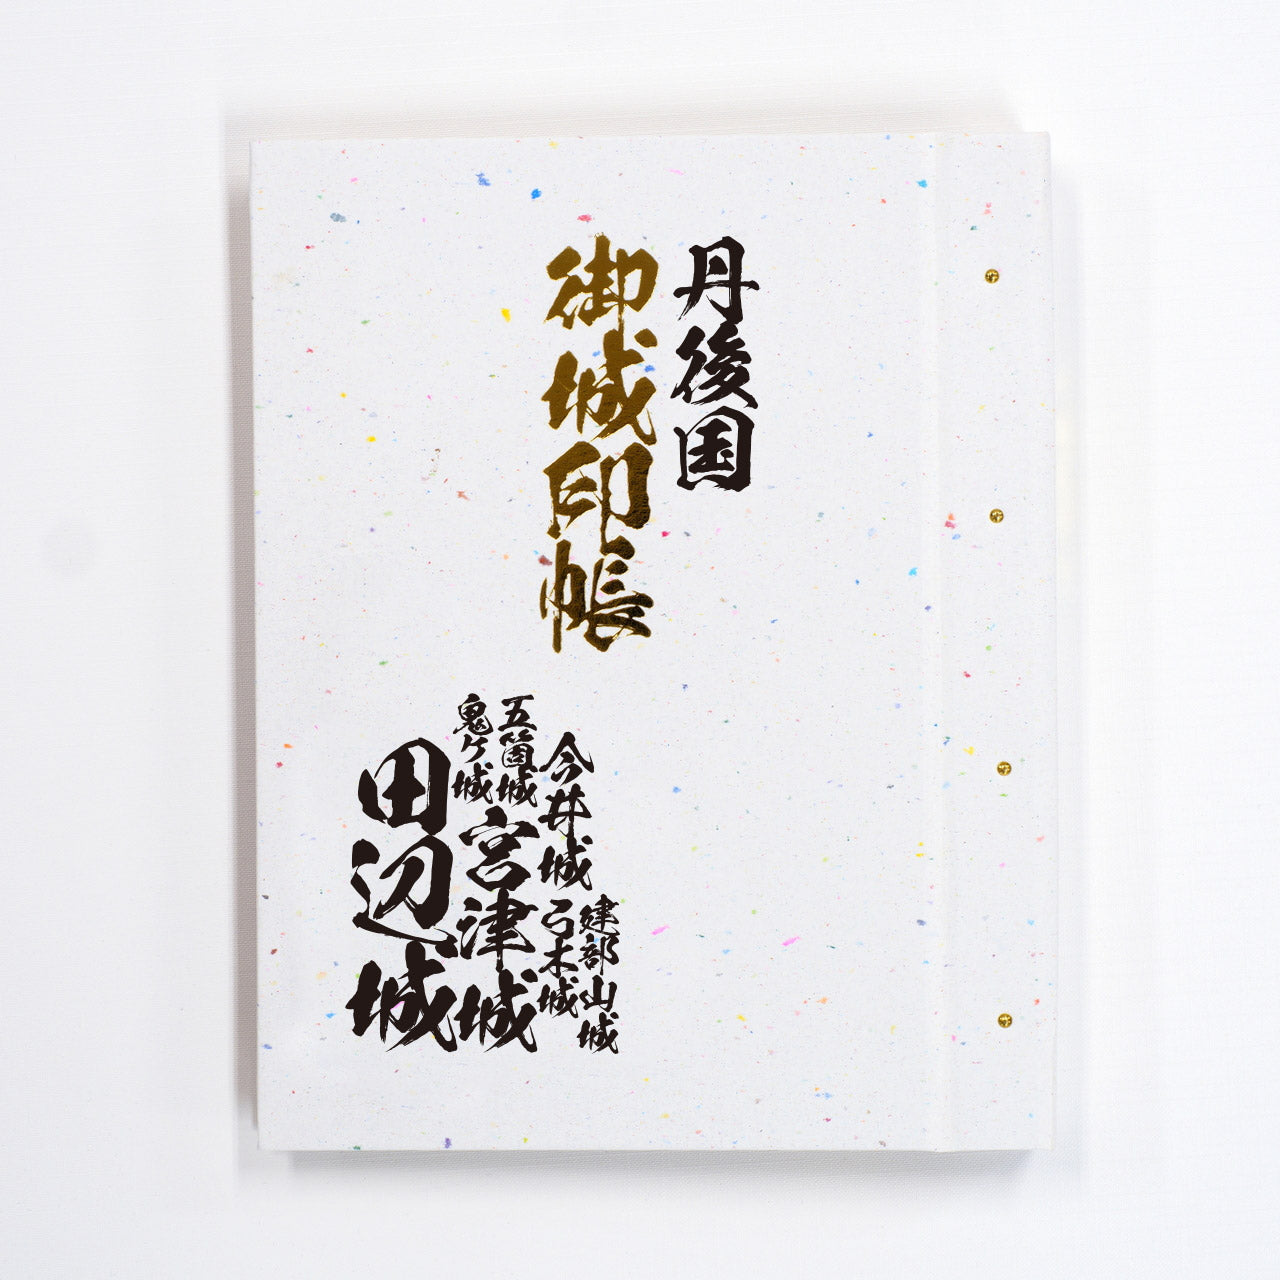 丹後国
御城印帳
建部山城
今井城
弓木城
五箇城
宮津城
鬼ケ城
田辺城